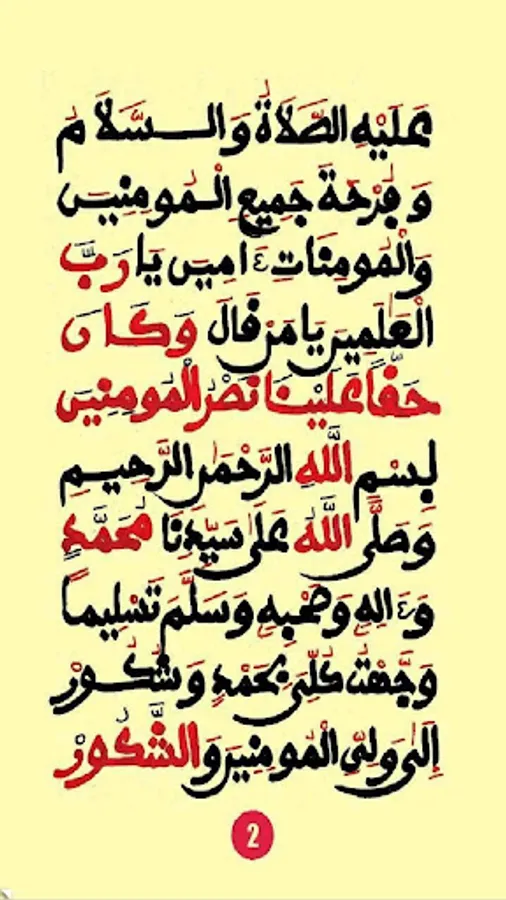 عَلَيْهِ الصَّلَاةُ وَالسَّلَامُ
وَفَرْحَةَ جَمِيعِ الْمُومِنِينَ
وَالْمُومِنَاتِ ءَامِينَ يَا رَبَّ
الْعَلَمِينَ يَا مَنْ قَالَ وَكَانَ
حَقًّا عَلَيْنَا نَصْرُ الْمُومِنِينَ
بِسْمِ اللَّهِ الرَّحْمَنِ الرَّحِيمِ
وَصَلَّى اللَّهُ عَلَى سَيِّدِنَا مُحَمَّدٍ
وَءَالِهِ وَصَحْبِهِ وَسَلَّمَ تَسْلِيماً
وَجَّهْتُ كُلِّيَ بِحَمْدٍ وَشُكُورْ
إِلَى وَلِيِّ الْمُومِنِينَ وَالشَّكُورْ
2